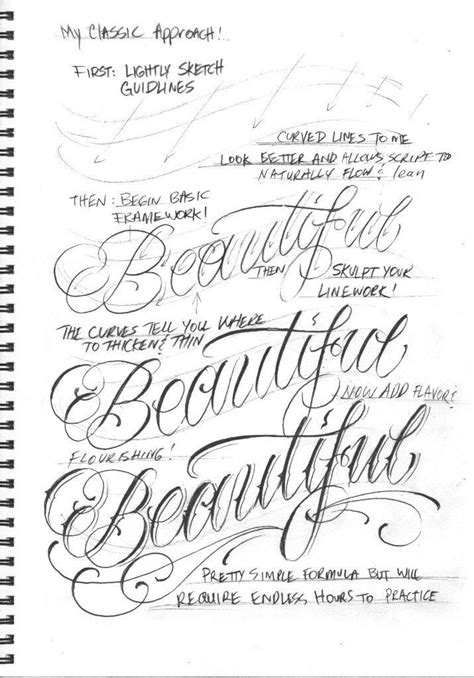 My Classic Approach!
First: Lightly Sketch
Guidlines
Curved lines to me
look better and allows script to
naturally flow & lean
Then: Begin basic
framework!
Beautiful
Then
Skulpt your
linework!
The curves tell you where
to thicken & thin
Beautiful
Now add flavor!
Flourishing!
Beautiful
Pretty simple formula but will
require endless hours to practice